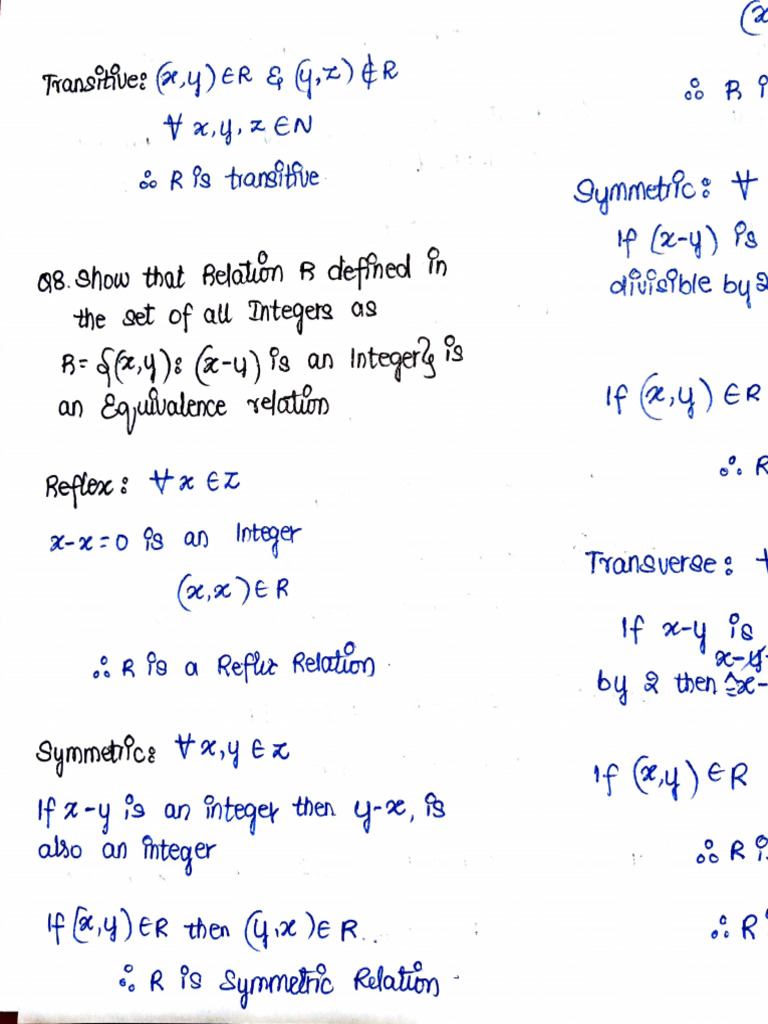 Transitive: (x,y) ∈ R & (y,z) ∉ R
∀ x,y,z ∈ N
∴ R is transitive
Q8. Show that Relation R defined in
the set of all Integers as
R = {(x,y): (x-y) is an Integer} is
an Equivalence relation
Reflex: ∀ x ∈ Z
x-x=0 is an Integer
(x,x) ∈ R
∴ R is a Reflix Relation
Symmetric: ∀ x,y ∈ z
If x-y is an integer then y-x, is
also an integer
If (x,y) ∈ R then (y,x) ∈ R.
∴ R is Symmetric Relation
(x
∴ R i
Symmetric: ∀
If (x-y) is
divisible by 2
If (x,y) ∈ R
∴ R
Transverse:
If x-y is
by 2 then x-
If (x,y) ∈ R
∴ R i
∴ R